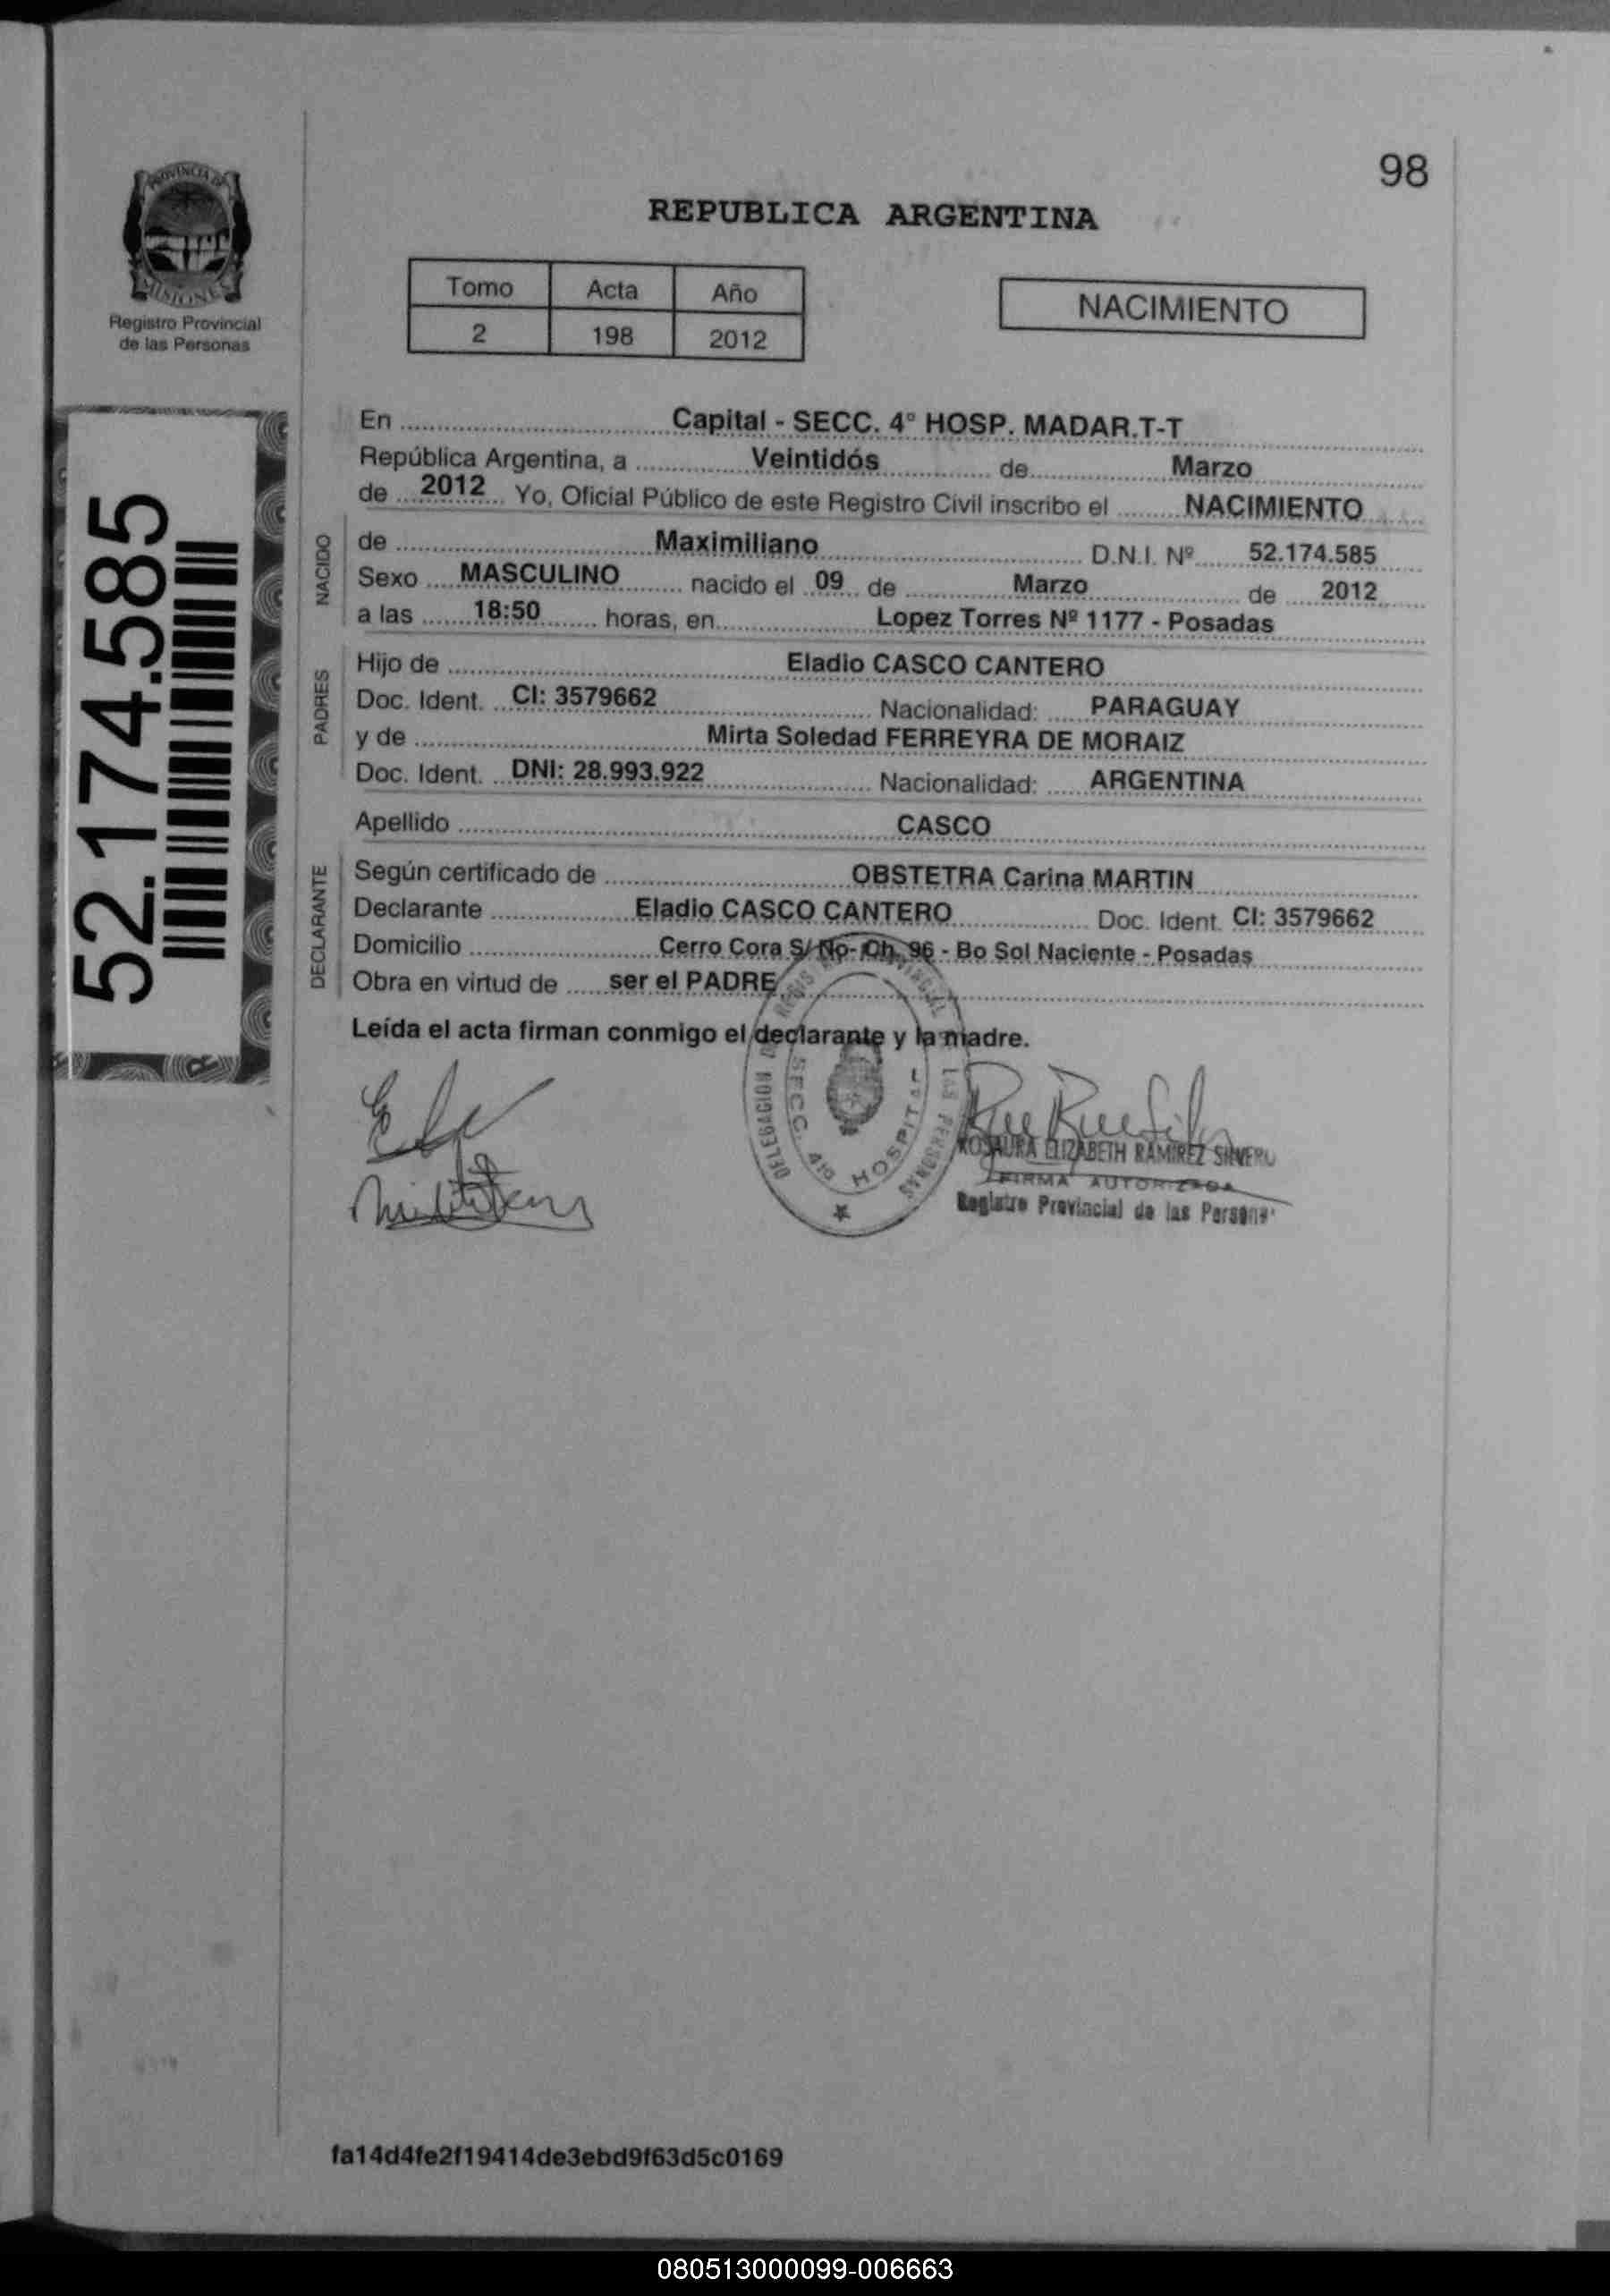 98
PROVINCIA DE
MISIONES
Registro Provincial
de las Personas
REPUBLICA ARGENTINA
Tomo Acta Año
2 198 2012
NACIMIENTO
52.174.585
En Capital - SECC. 4º HOSP. MADAR.T-T
República Argentina, a Veintidós de Marzo
de 2012 Yo, Oficial Público de este Registro Civil inscribo el NACIMIENTO
NACIDO
de Maximiliano D.N.I. Nº 52.174.585
Sexo MASCULINO nacido el 09 de Marzo de 2012
a las 18:50 horas, en Lopez Torres Nº 1177 - Posadas
PADRES
Hijo de Eladio CASCO CANTERO
Doc. Ident. CI: 3579662 Nacionalidad: PARAGUAY
y de Mirta Soledad FERREYRA DE MORAIZ
Doc. Ident. DNI: 28.993.922 Nacionalidad: ARGENTINA
Apellido CASCO
DECLARANTE
Según certificado de OBSTETRA Carina MARTIN
Declarante Eladio CASCO CANTERO Doc. Ident. CI: 3579662
Domicilio Cerro Cora S/ No- Ch. 96 - Bo Sol Naciente - Posadas
Obra en virtud de ser el PADRE
Leída el acta firman conmigo el declarante y la madre.
DELEGACION
LAS PERSONAS
SECC. 4ta HOSPITAL
ROSAURA ELIZABETH RAMIREZ SILVERO
FIRMA AUTORIZADA
Registro Provincial de las Persona
fa14d4fe2f19414de3ebd9f63d5c0169
080513000099-006663